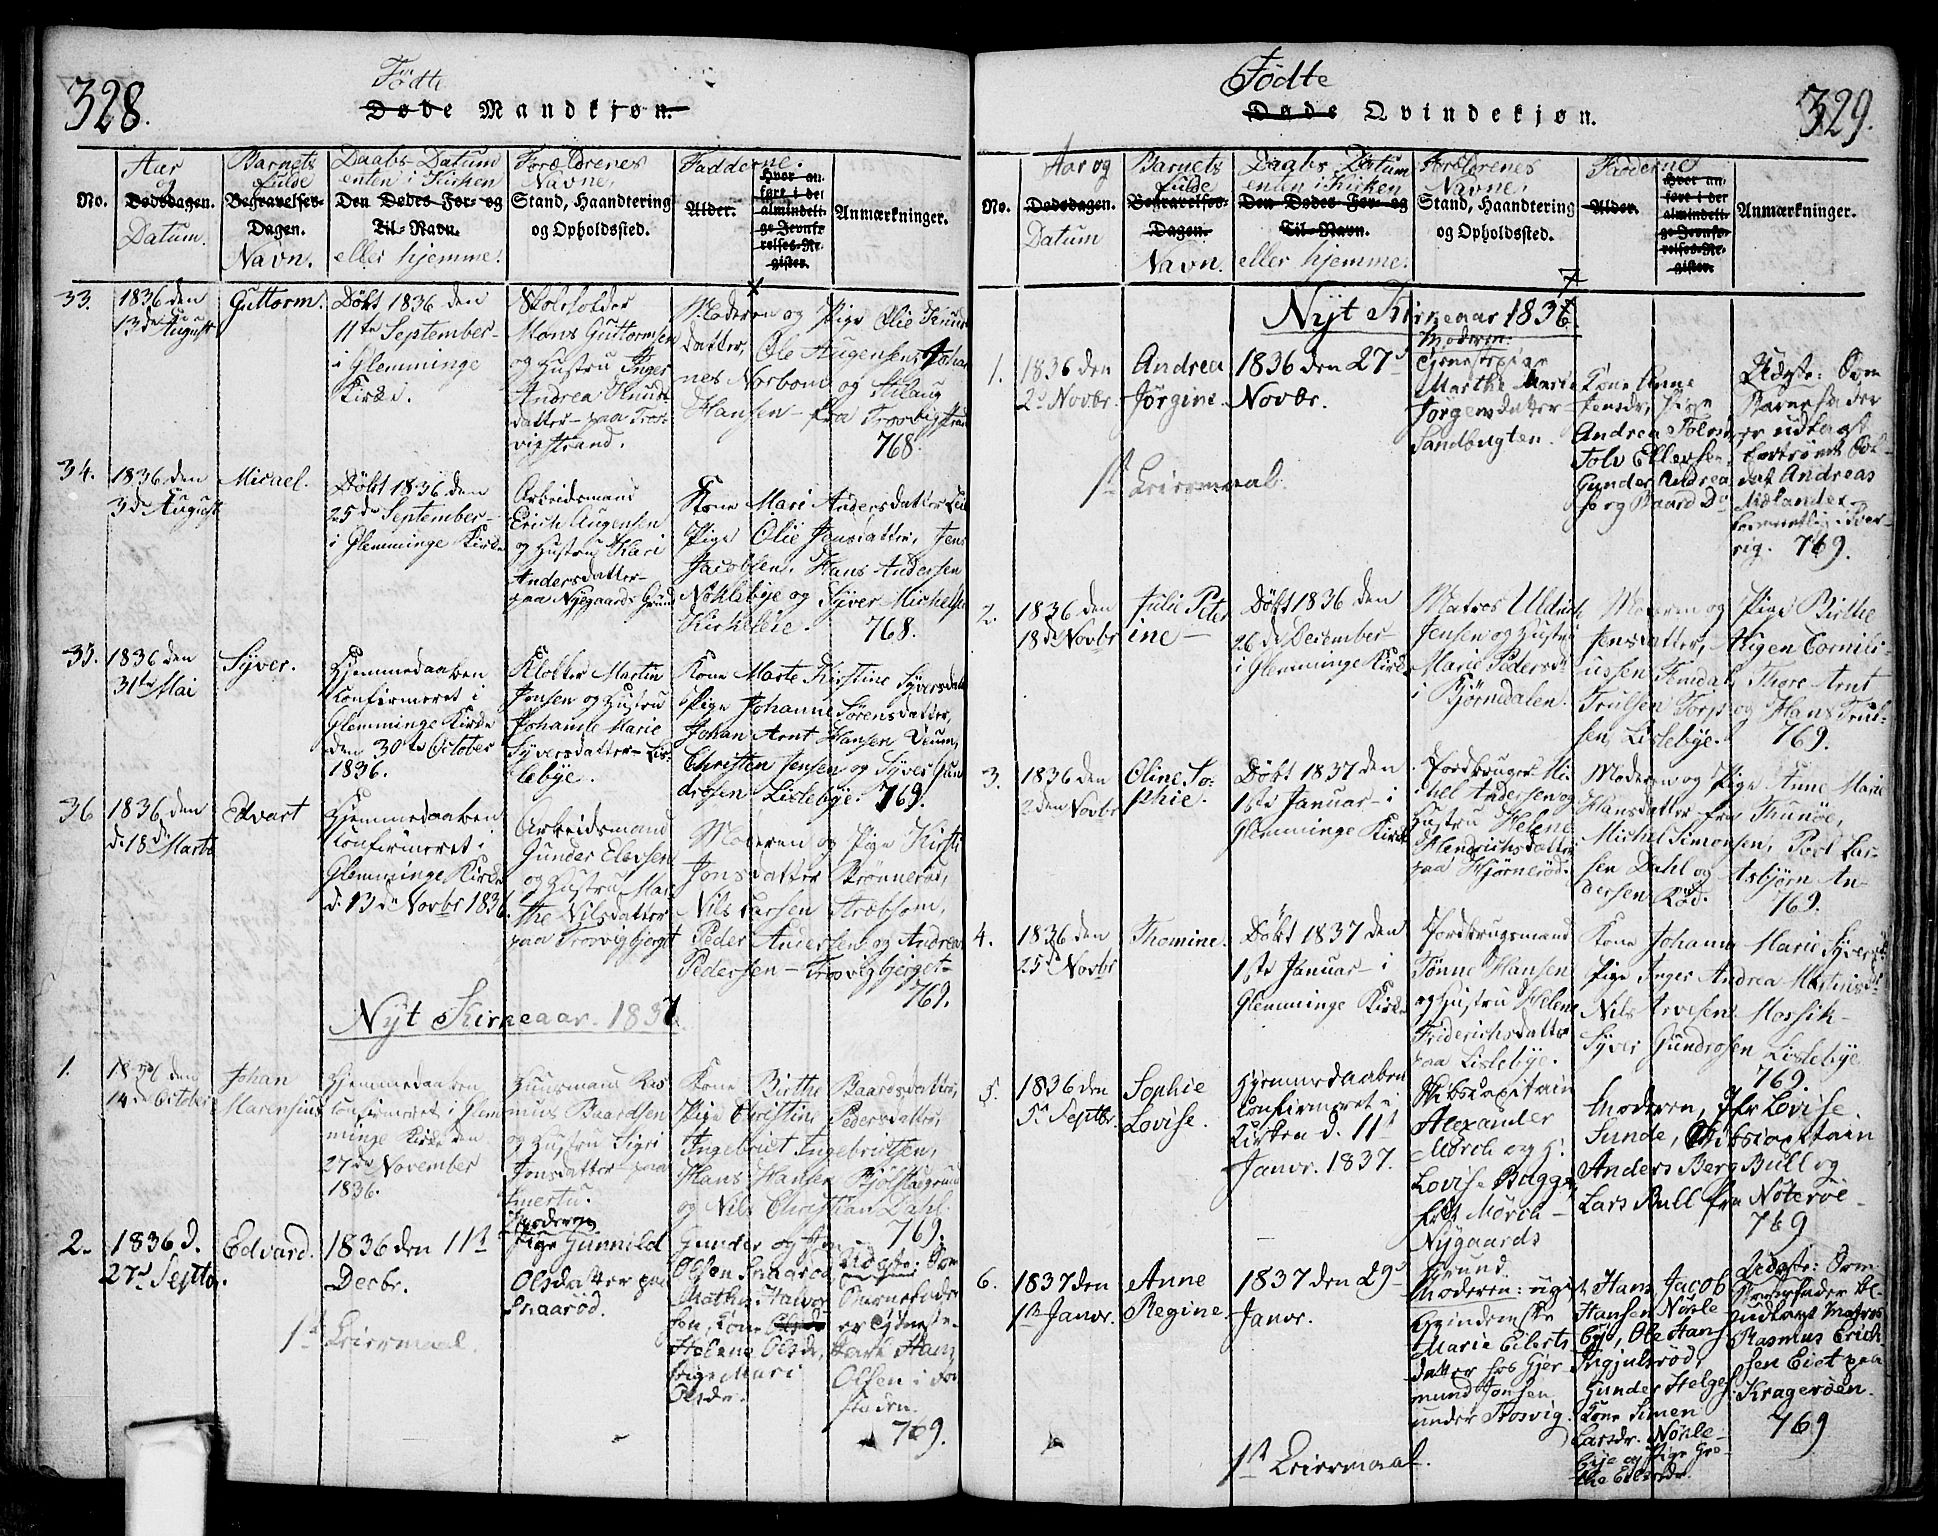 328.
Födte
Døde Mandkjøn.
No.
Aar
og
Dødsdagen.
Datum.
Barnets
fulde
Begravelses-
Dagen.
Navn.
Daabs Datum
enten i Kirken
Den Dødes For- og
Til-Navn.
eller hjemme.
Forældrenes
Navne,
Stand, Haandtering
og Opholdssted.
Fadderne.
Alder.
Hvor an-
føre i det
almindeli-
ge Jevnfø-
relses-Re-
gister.
Anmærkninger.
33.
1836 den
13de August
Guttorm.
Döbt 1836 den
11te September
i Glemminge
Kirke.
Skoleholder
Mons Guttormsen
og Hustru Inger
Andrea Knuds
datter paa Tros-
vigstrand.
Moderen og Pige Olie Knuds
datter, Ole Augensen, Johan
nes Norbom og
Hansen fra Trosvigstrand
768.
34.
1836 den
3de August
Micael.
Döbt 1836 den
25de September
i Glemminge Kirke
Arbeidsmand
Erich Augensen
og Hustru Kari
Andersdatter
paa Nyegaards Grund
Kone Mari Andersdatter
Pige Olie Jonsdatter, Jens
Jacobsen, Hans Andersen
Nöklebye og Syver Michelsen
Kirkeleie.
768.
35.
1836 den
31te Mai
Syver.
Hjemmedaaben
Confirmeret i
Glemminge Kirke
den 30te October
1836.
Klokker Martin
Jensen og Hustru
Johanne Marie
Syversdatter Lis-
lebye.
Kone Marte Kirstine Syversdatter
Pige Johanne Sörensdatter,
Johan Arnt Hansen Veum,
Christen Jensen og Syver Gun
drosen Lislebye. 769.
36
1836 den
d. 18de Marts
Edvart
Hjemmedaaben
Confirmeret i
Glemminge Kirke
d. 13de Novbr 1836
Arbeidsmand
Gunder Elevsen
og Hustru Mar
the Nilsdatter
paa Trosvigbjerget
Moderen og Pige Kirsti
Jonsdatter Brönneröd,
Nils Larsen
Peder Andersen og Andrea
Pedersen Trosvigbjerget
769.
Nyt Kirkeaar. 1837.
1.
1836 den
14de October
Johan
Marensius
Hjemmedaaben
confirmeret i Glem
minge Kirke den
27de November
1836.
Huusmand Ras
mus Baardsen
og Hustru Sigri
Jonsdatter paa
Kone Birthe Baardsdatter,
Pige Christine Pedersdatter,
Ingebret Ingebretsen,
Hans Hansen Bjölstadgrund
og Nils Christian Dahl
769.
2.
1836 d.
27de Septbr.
Edvard.
1836 den 11te
Decbr.
1ste Leiermaal.
Moderen
Pige Gunnild
Olsdatter paa
Snaaröd.
Gunder og
Olsen Snaaröd,
Mathis Halvor
sen, Kone
Helene Olsdr.
Pige Mari
Olsdr.
Udgste: Som
Barnefader
er Tjeneste-
karl Hans
Olsen i
769.
329.
Födte
Døde Qvindekjøn.
No.
Aar og
Dødsdagen.
Datum
Barnets
fulde
Begravelses-
Dagen.
Navn.
Daabs Datum
enten i Kirken
Den Dødes For- og
Til-Navn.
eller hjemme.
Forældrenes
Navne,
Stand, Haandtering
og Opholdssted.
Fadderne
Alder.
Hvor an-
føre i det
almindeli-
ge Jevnfø-
relses-Re-
gister.
Anmærkninger.
Nyt Kirkeaar 1837.
1.
1836 den
2de Novbr.
Andrea
Jörgine.
1836 den 27de
Novbr.
1ste Leiermaal.
Moderen:
Tjenestepige
Marthe Marie
Jörgensdatter
Sandbugten.
Kone Anne
Jensdr, Pige
Andrea
Tolv Ellefsen,
Gunder Andrea
og Baard Do
Udgste: Som
Barnefader
er udlagt
Sol-
dat Andreas
Sver-
rig. 769.
2.
1836 den
18de Novbr
Julie Peter
ine
Döbt 1836 den
26de December
i Glemminge Kirke
Matros
Jensen og Hustru
Marie Pedersdtr
i Björnedalen.
Moderen og Pige Birthe
Jensdatter, Augen Corneli-
ussen Femdal, Thore Arnt
Trulsen Torp og Hans Trul-
sen, Lislebye. 769.
3.
1836 den
2den Novbr
Oline So-
phie.
Döbt 1837 den
1ste Januar i
Glemminge Kirke
Jordbruger Mi
chel Andersen og
Hustru Helene
Hendrichsdatter
paa Hjörneröd.
Moderen og Pige Anne Marie
Hansdatter fra Thunöe,
Michel Simonsen, Peder Lar-
sen Dahl og Asbjörn An-
dersen Röd. 769.
4.
1836 den
25de Novbr
Thomine.
Döbt 1837 den
1ste Januar i
Glemminge Kirke
Jordbrugsmand
Tönne Hansen
og Hustru Helene
Friderichsdatter
paa Lislebye.
Kone Johanne Marie Syversdtr
Pige Inger Andrea Martinsdr
Nils Arvesen Mossik
Syver Gundrosen Lislebye
769.
5.
1836 den
5te Septbr.
Sophie
Lovise.
Hjemmedaaben
Confirmeret i
Kirken d. 11te
Janvr. 1837.
Skibscapitain
Alexander
Mörch og H.
Lovise Bagge
Mörch
Nygaards
Grund.
Moderen, Jfr Lovise
Sunde, Skibscapitain
Anders Berg Bull og
Lars Bull fra Nöteröe
769
6.
1837 den
1ste Janvr.
Anne
Regine
1837 den 29de
Janvr.
1ste Leiermaal.
Moderen: ugift
Qvindemske
Marie Eilerts
datter hos Gjer
mund Jonsen
under Trosvig.
Hans Jacob
Hansen Nökle
bye, Ole Hans
Ingjulsröd,
Gunder Helges
Kone Simen
Larsdr. Nökle-
bye og Pige Gro-
the Eilersdr.
Udgste: Som
Barnefader er
udlagt Matros
Rasmus Erich
sen Eiet paa
Krageröen.
769